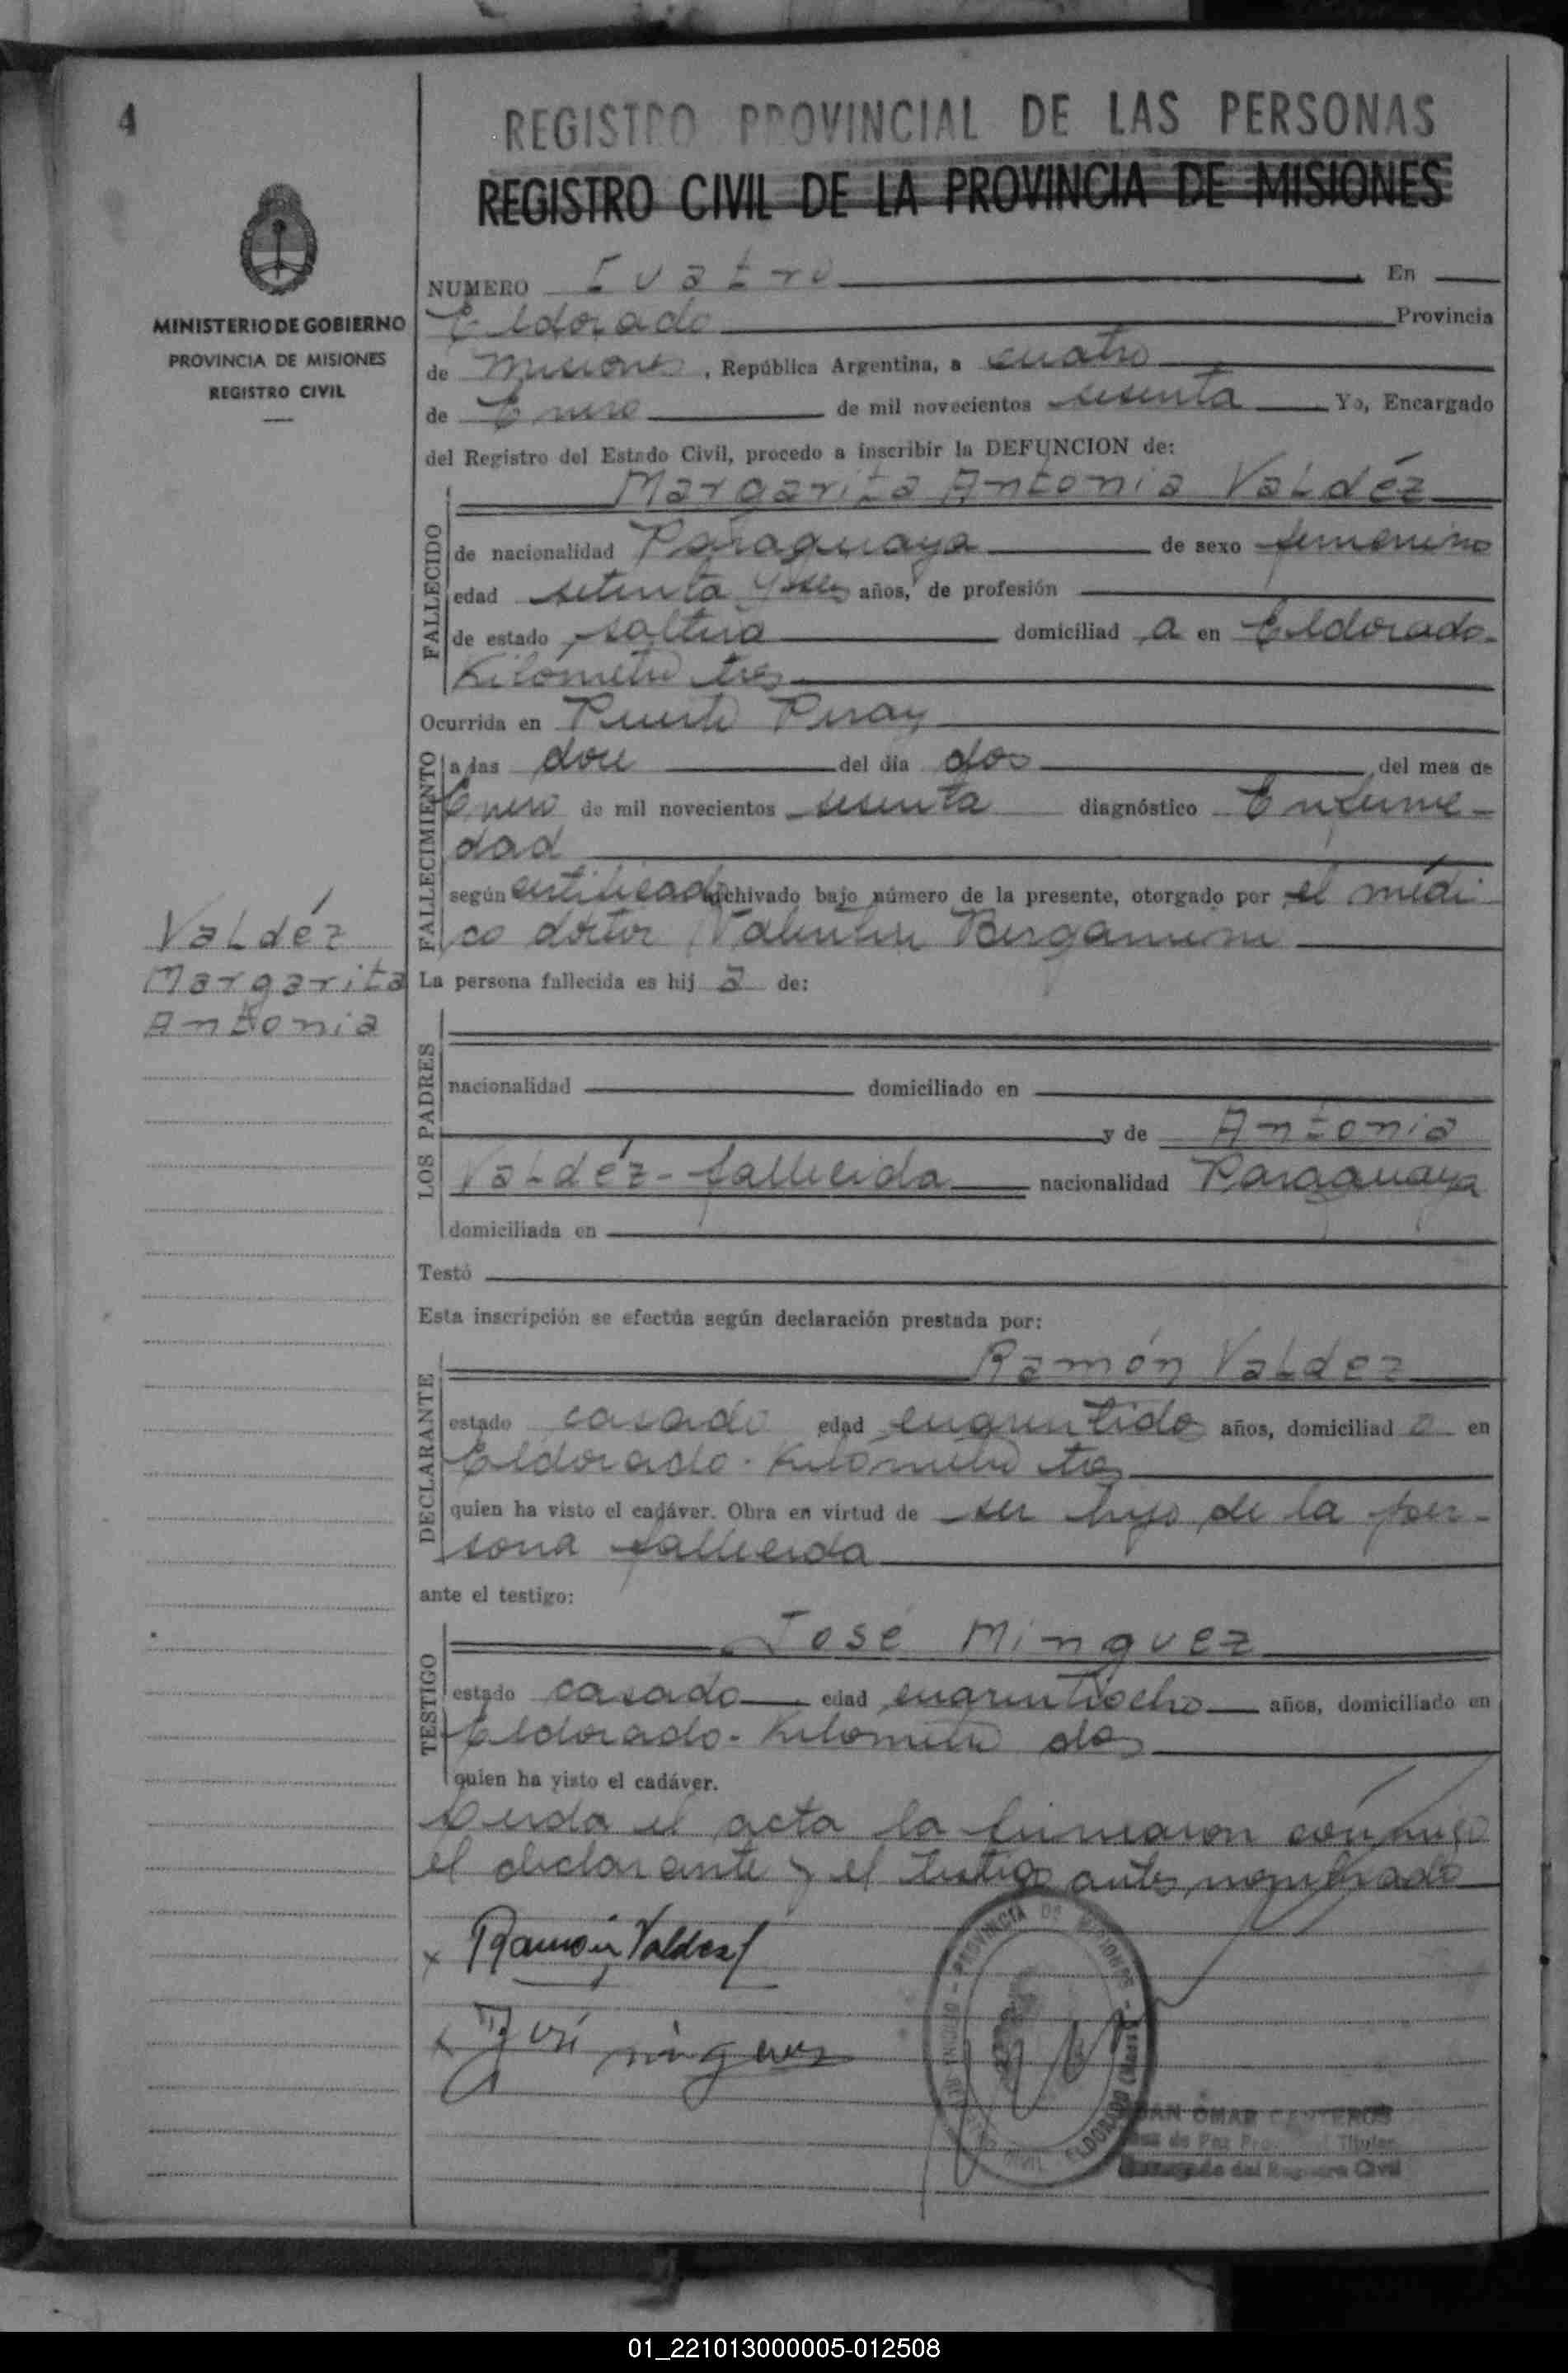 4
REGISTRO PROVINCIAL DE LAS PERSONAS
REGISTRO CIVIL DE LA PROVINCIA DE MISIONES
MINISTERIO DE GOBIERNO
PROVINCIA DE MISIONES
REGISTRO CIVIL
NUMERO Cuatro En
Eldorado Provincia
de Misiones, República Argentina, a cuatro
de Enero de mil novecientos sesenta Yo, Encargado
del Registro del Estado Civil, procedo a inscribir la DEFUNCION de:
Margarita Antonia Valdéz
FALLECIDO
de nacionalidad Paraguaya de sexo femenino
edad setenta y seis años, de profesión
de estado soltera domiciliad a en Eldorado-
Kilometro tres
Ocurrida en Puerto Piray
FALLECIMIENTO
a las doce del día dos del mes de
Enero de mil novecientos sesenta diagnóstico Enferme-
dad
según certificado archivado bajo número de la presente, otorgado por el médi
co doctor Valentin Bergamini
Valdéz
Margarita
Antonia
La persona fallecida es hij a de:
LOS PADRES
nacionalidad domiciliado en
y de Antonia
Valdéz- fallecida nacionalidad Paraguaya
domiciliada en
Testó
Esta inscripción se efectúa según declaración prestada por:
Ramón Valdez
DECLARANTE
estado casado edad cuarentidos años, domiciliad o en
Eldorado- Kilometro tres
quien ha visto el cadáver. Obra en virtud de ser hijo de la per-
sona fallecida
ante el testigo:
José Minguez
TESTIGO
estado casado edad cuarentiocho años, domiciliado en
Eldorado- Kilometro dos
quien ha visto el cadáver.
Leida el acta la firmaron conmigo
el declarante y el testigo antes nombrado
x Ramón Valdez
x José Minguez
PROVINCIA DE MISIONES
REGISTRO CIVIL ELDORADO (Mnes.)
JUAN OMAR CANTEROS
Juez de Paz Provincial Titular
Encargado del Registro Civil
01_221013000005-012508